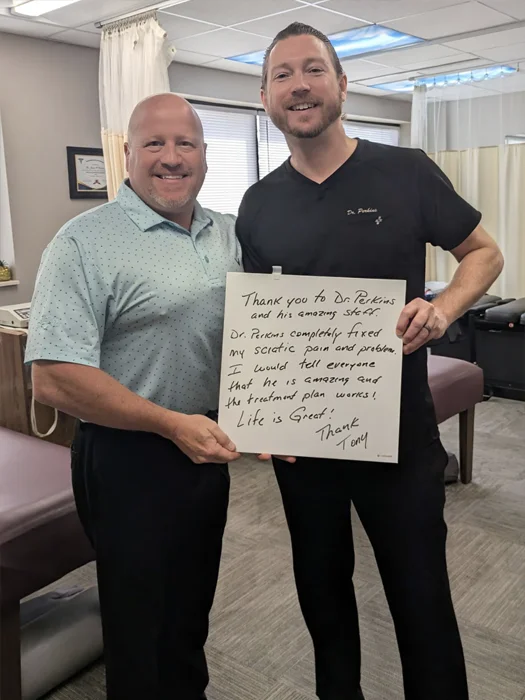 Dr. Perkins
Thank you to Dr. Perkins
and his amazing staff.
Dr. Perkins completely fixed
my sciatic pain and problem.
I would tell everyone
that he is amazing and
the treatment plan works!
Life is Great!
Thank
Tony